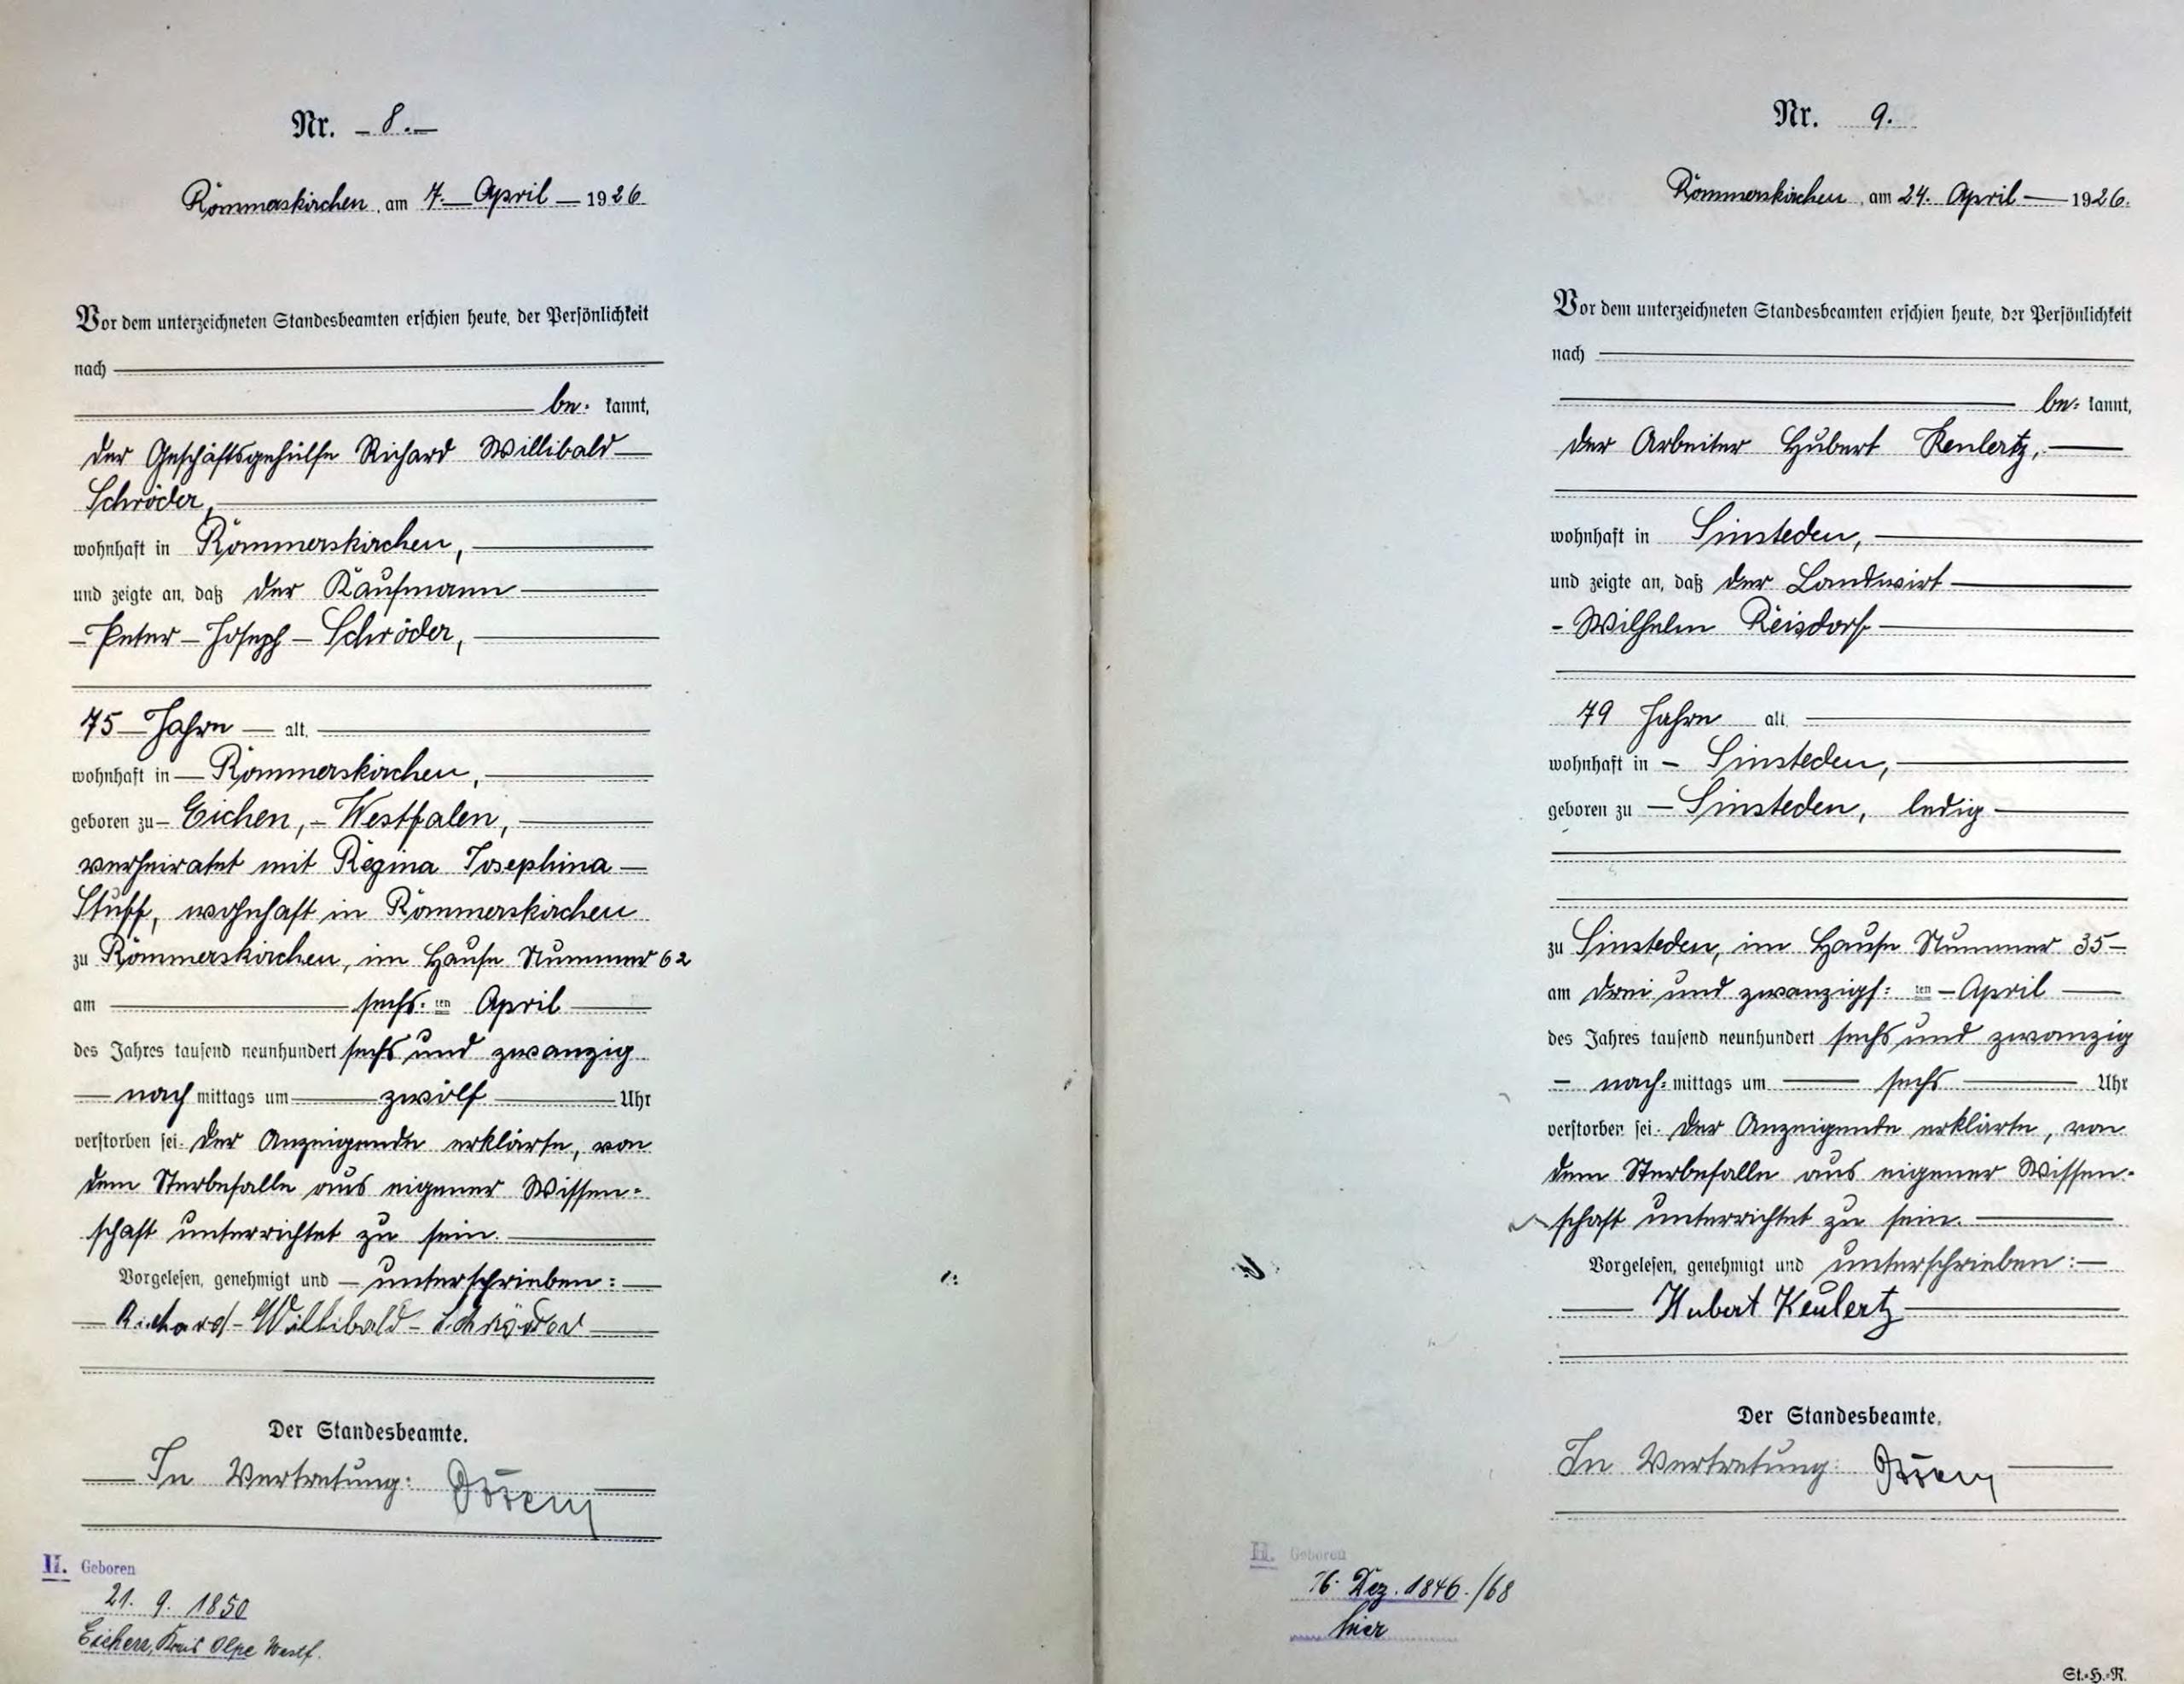 Nr. 8.
Rommerskirchen, am 7. April 1926.
Vor dem unterzeichneten Standesbeamten erschien heute, der Persönlichkeit
nach
be= kannt,
der Geschäftsgehülfe Richard Willibald
Schröder,
wohnhaft in Rommerskirchen,
und zeigte an, daß der Kaufmann
Peter Joseph Schröder,
75 Jahre alt,
wohnhaft in Rommerskirchen,
geboren zu Eichen, Westfalen,
verheiratet mit Regina Josephina
Stuff, wohnhaft in Rommerskirchen
zu Rommerskirchen, im Hause Nummer 62
am sechs= ten April
des Jahres tausend neunhundert sechs und zwanzig
nach mittags um zwölf Uhr
verstorben sei. Der Anzeigende erklärte, von
dem Sterbefalle aus eigener Wissen=
schaft unterrichtet zu sein.
Vorgelesen, genehmigt und unterschrieben:
Richard Willibald Schröder
Der Standesbeamte.
In Vertretung:
II. Geboren
21. 9. 1850
Eichen, Kreis Olpe Westf.
Nr. 9.
Rommerskirchen, am 24. April 1926.
Vor dem unterzeichneten Standesbeamten erschien heute, der Persönlichkeit
nach
be= kannt,
der Arbeiter Hubert Keulertz,
wohnhaft in Sinsteden,
und zeigte an, daß der Landwirt
Wilhelm Reisdorf
79 Jahre alt,
wohnhaft in Sinsteden,
geboren zu Sinsteden, ledig
zu Sinsteden, im Hause Nummer 35
am drei und zwanzigs= ten April
des Jahres tausend neunhundert sechs und zwanzig
nach= mittags um sechs Uhr
verstorben sei. Der Anzeigende erklärte, von
dem Sterbefalle aus eigener Wissen=
schaft unterrichtet zu sein.
Vorgelesen, genehmigt und unterschrieben:
Hubert Keulertz
Der Standesbeamte.
In Vertretung:
II. Geboren
16. Dez. 1846./68
hier
St.=H.=R.